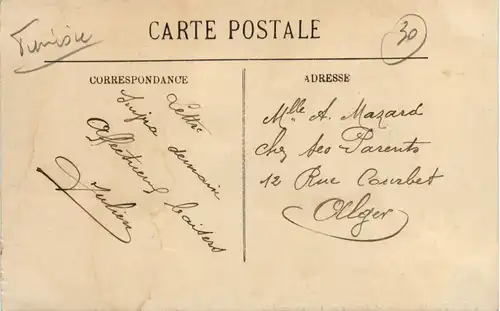 Tunisie
CARTE POSTALE
30
CORRESPONDANCE
Lettre
suivra demain
Affectueux baisers
Julien
ADRESSE
Mlle A. Mazard
chez ses Parents
12 Rue Courbet
Alger